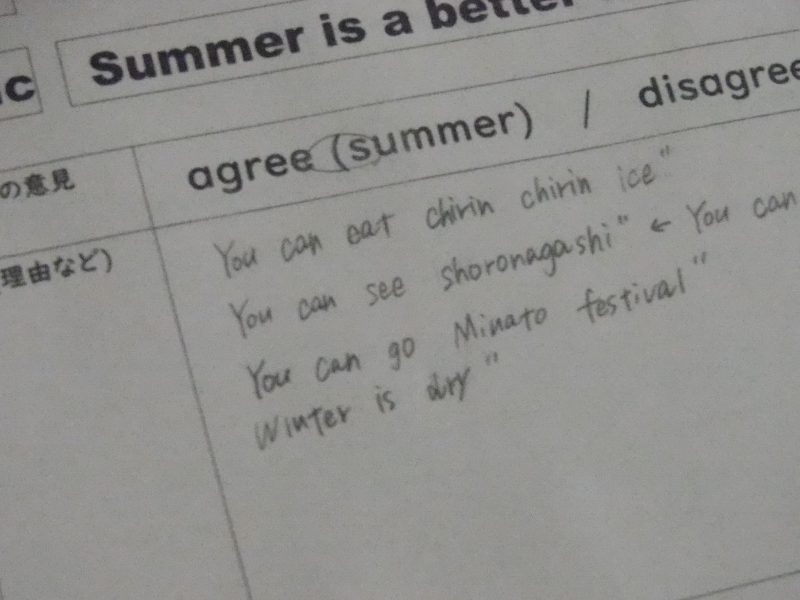 c Summer is a better
の意見 agree (summer) / disagree
理由など) You can eat chirin chirin ice"
You can see shoronagashi" ← You can
You can go Minato festival"
Winter is dry"